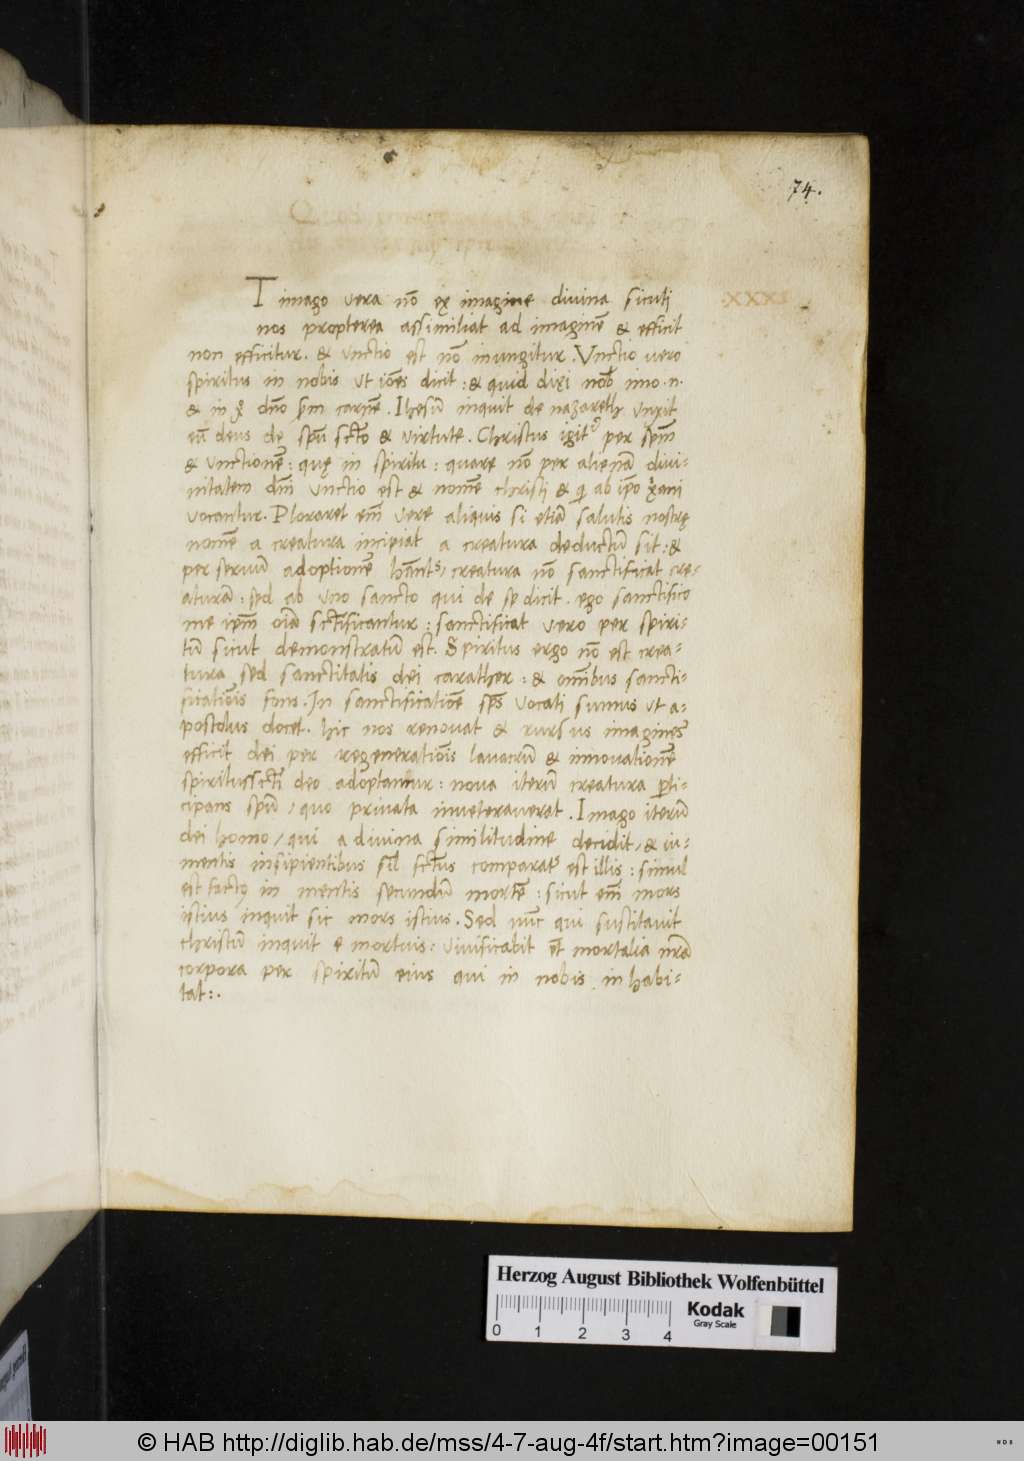 74.
XXXI
T imago vera nō ex imagine divina sicuti
nos propterea assimiliat ad imaginē & efficit
non efficitur. & vnctio est nō inungitur. Vnctio vero
spiritus in nobis vt ioēs dicit: & quid dixi nob imo.n.
& in dn̄o carnē. Ihesū inquit de nazareth vnxit
eū deus de spū sc̄to & virtute. Christus igit per spm̄
& vnctionē: quę in spiritu: quare nō per alienā divi-
nitatem dm̄ vnctio est & nomē christi & ab ip̄o x̄ani
vocantur. Ploraret em̄ vere aliquis si etiā salutis nostrę
nomē a creatura incipiat a creatura deductū sit: &
per servum adoptionē creatura nō sanctificat cre-
aturā: sed ab vno sancto qui de se dicit. ego sanctifico
me ip̄m oīa sc̄tificantur: sanctificat vero per spiri-
tū sicut demonstratū est. Spiritus ergo nō est crea-
tura sed sanctitatis dei carather: & om̄ibus sancti-
ficatiōis fons. In sanctificatiōe sp̄s vocati sumus vt a-
postolus docet. hic nos renovat & rursus imagines
efficit dei per regeneratiōis lavacrū & innovationē
spiritus sc̄ti deo adoptamur: nova iterū creatura p̄ti-
cipans spū / quo privata inveteraverat. Imago iterū
dei homo / qui a divina similitudine decidit / & iu-
mentis insipientibus sil fctus comparat est illis: simul
est facto in mentis secundū mortē: sicut em̄ mors
istius inquit sic mors istius. Sed nūc qui sustitavit
christū inquit e mortuis: vivificabit et mortalia nr̄a
corpora per spiritū eius qui in nobis inhabi-
tat:.
Herzog August Bibliothek Wolfenbüttel
Kodak
Gray Scale
0 1 2 3 4
© HAB http://diglib.hab.de/mss/4-7-aug-4f/start.htm?image=00151